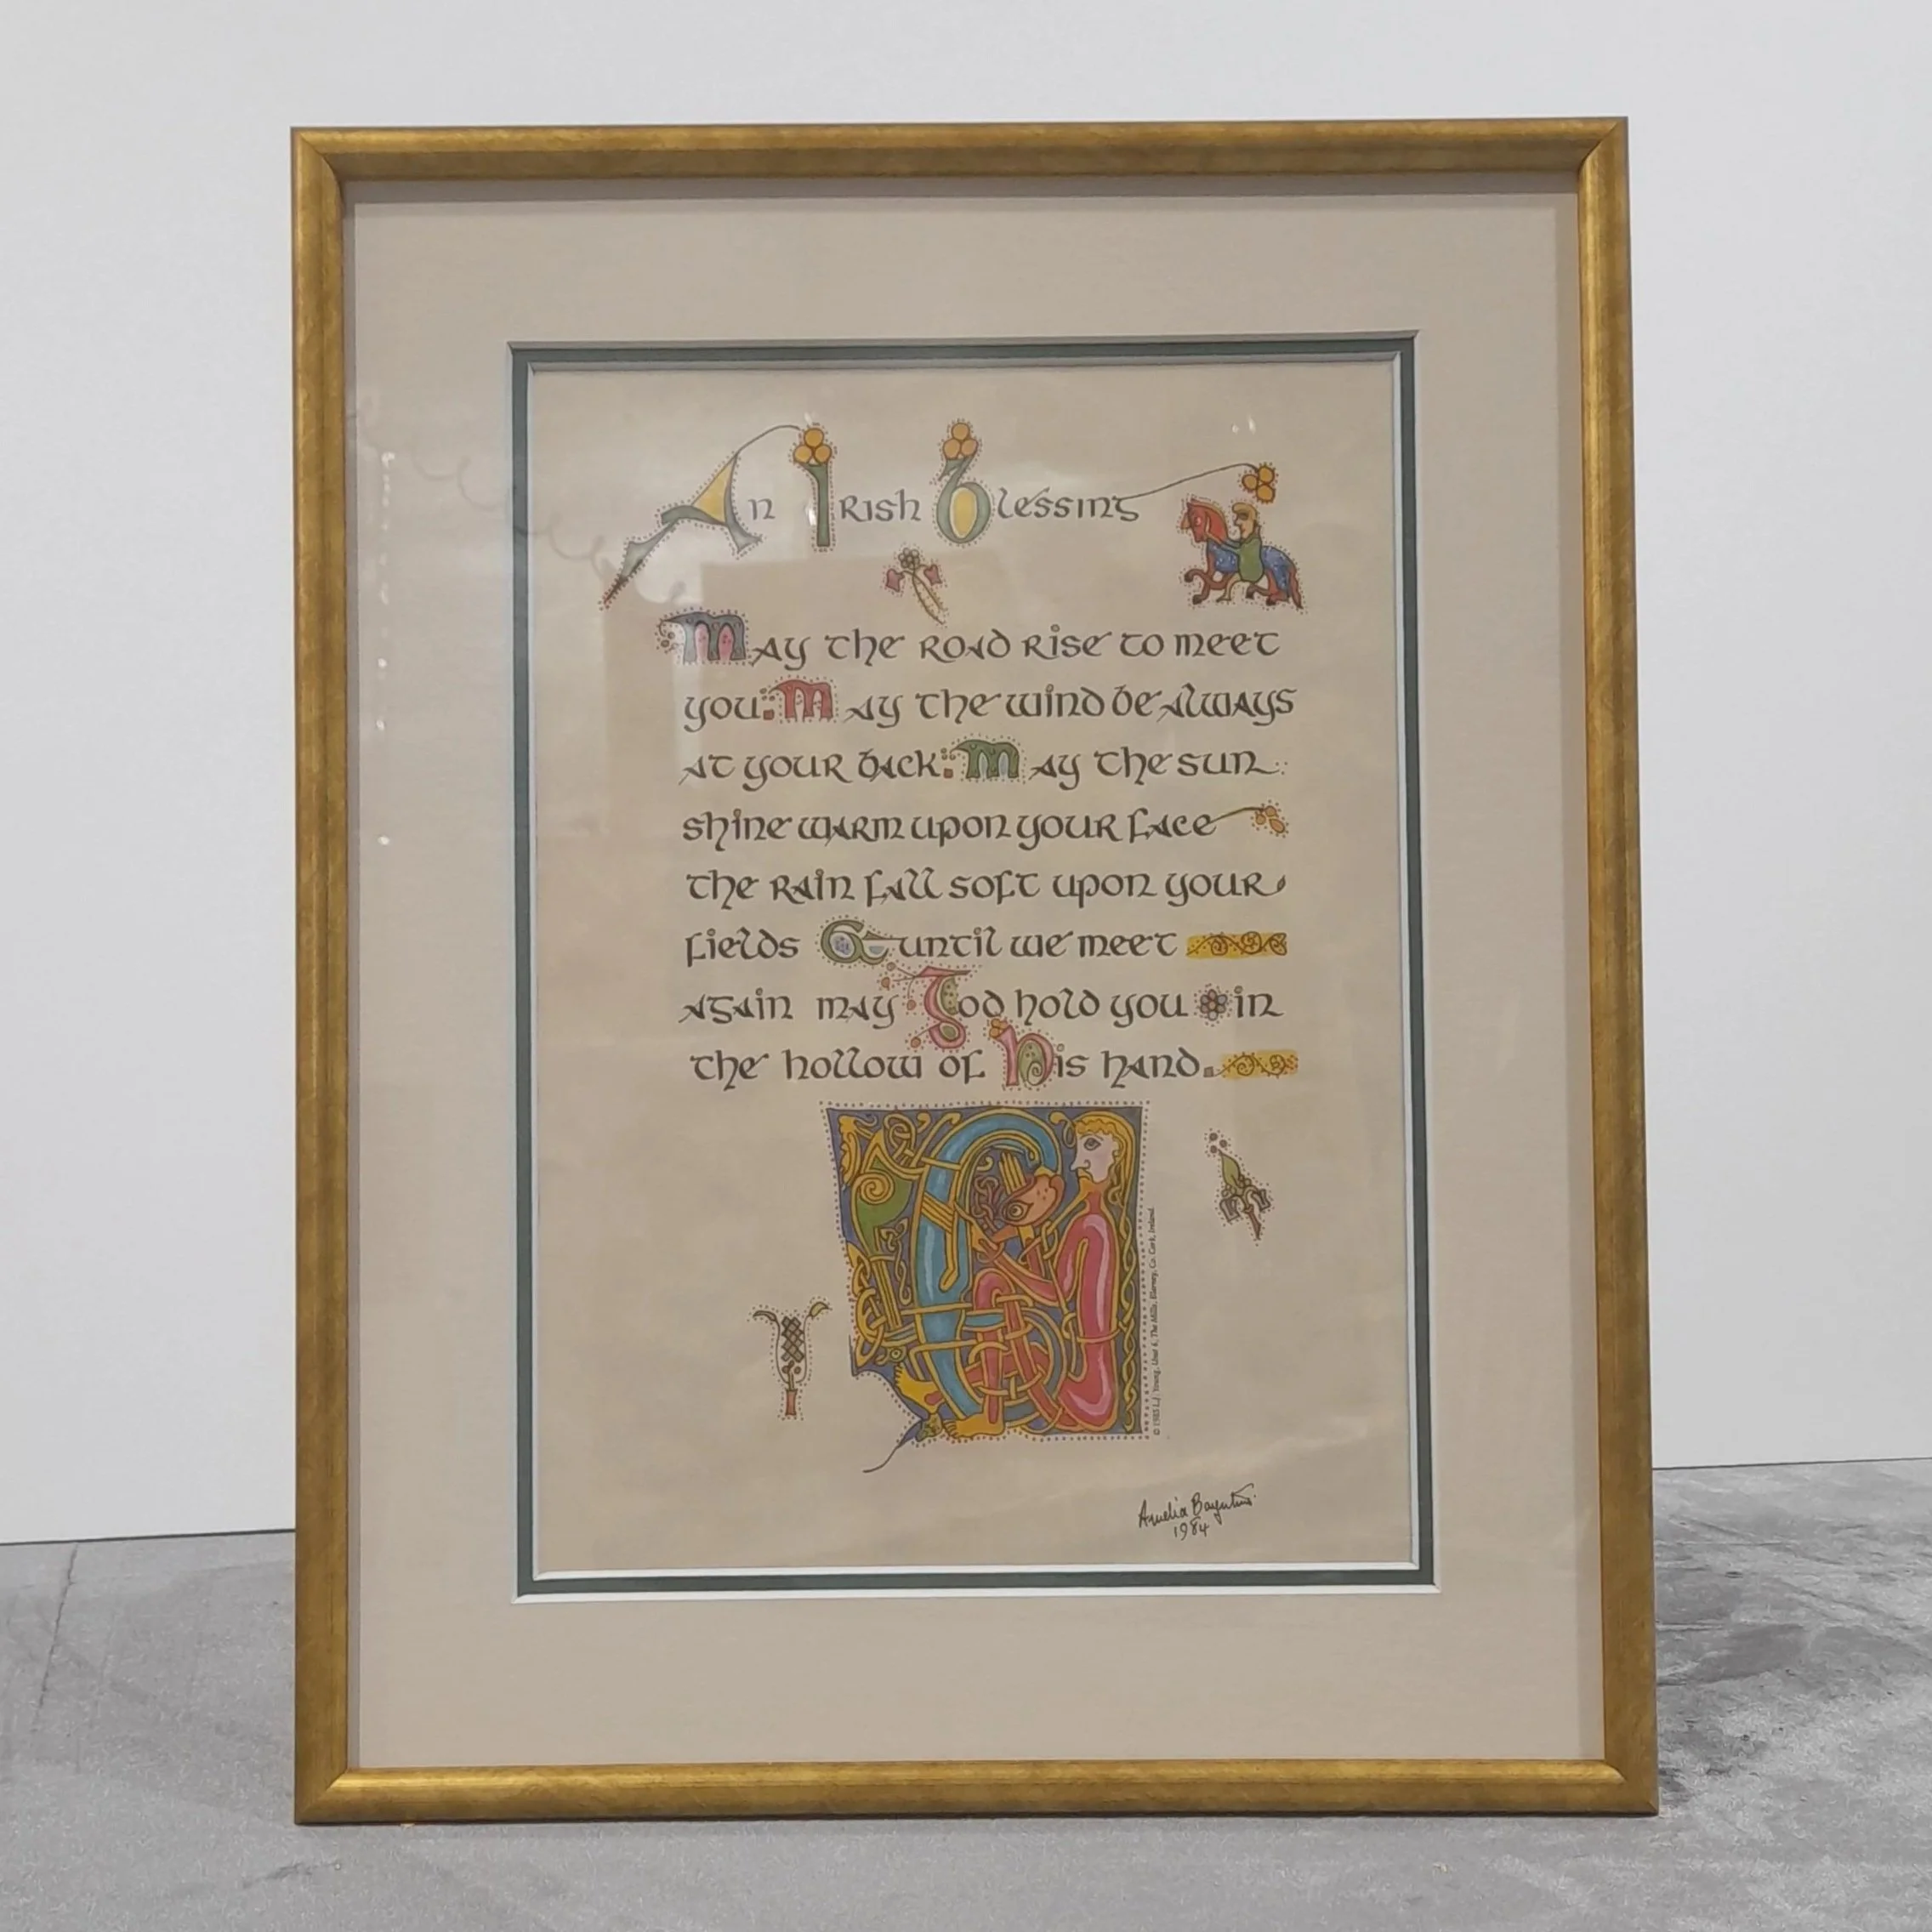 An Irish Blessing
May the road rise to meet
you: May the wind be always
at your back: May the sun
shine warm upon your face
the rain fall soft upon your
fields & until we meet
again may God hold you in
the hollow of His hand.
© 1985 L.J. Young, Unit 6, The Mills, Blarney, Co. Cork, Ireland.
Amelia
1984